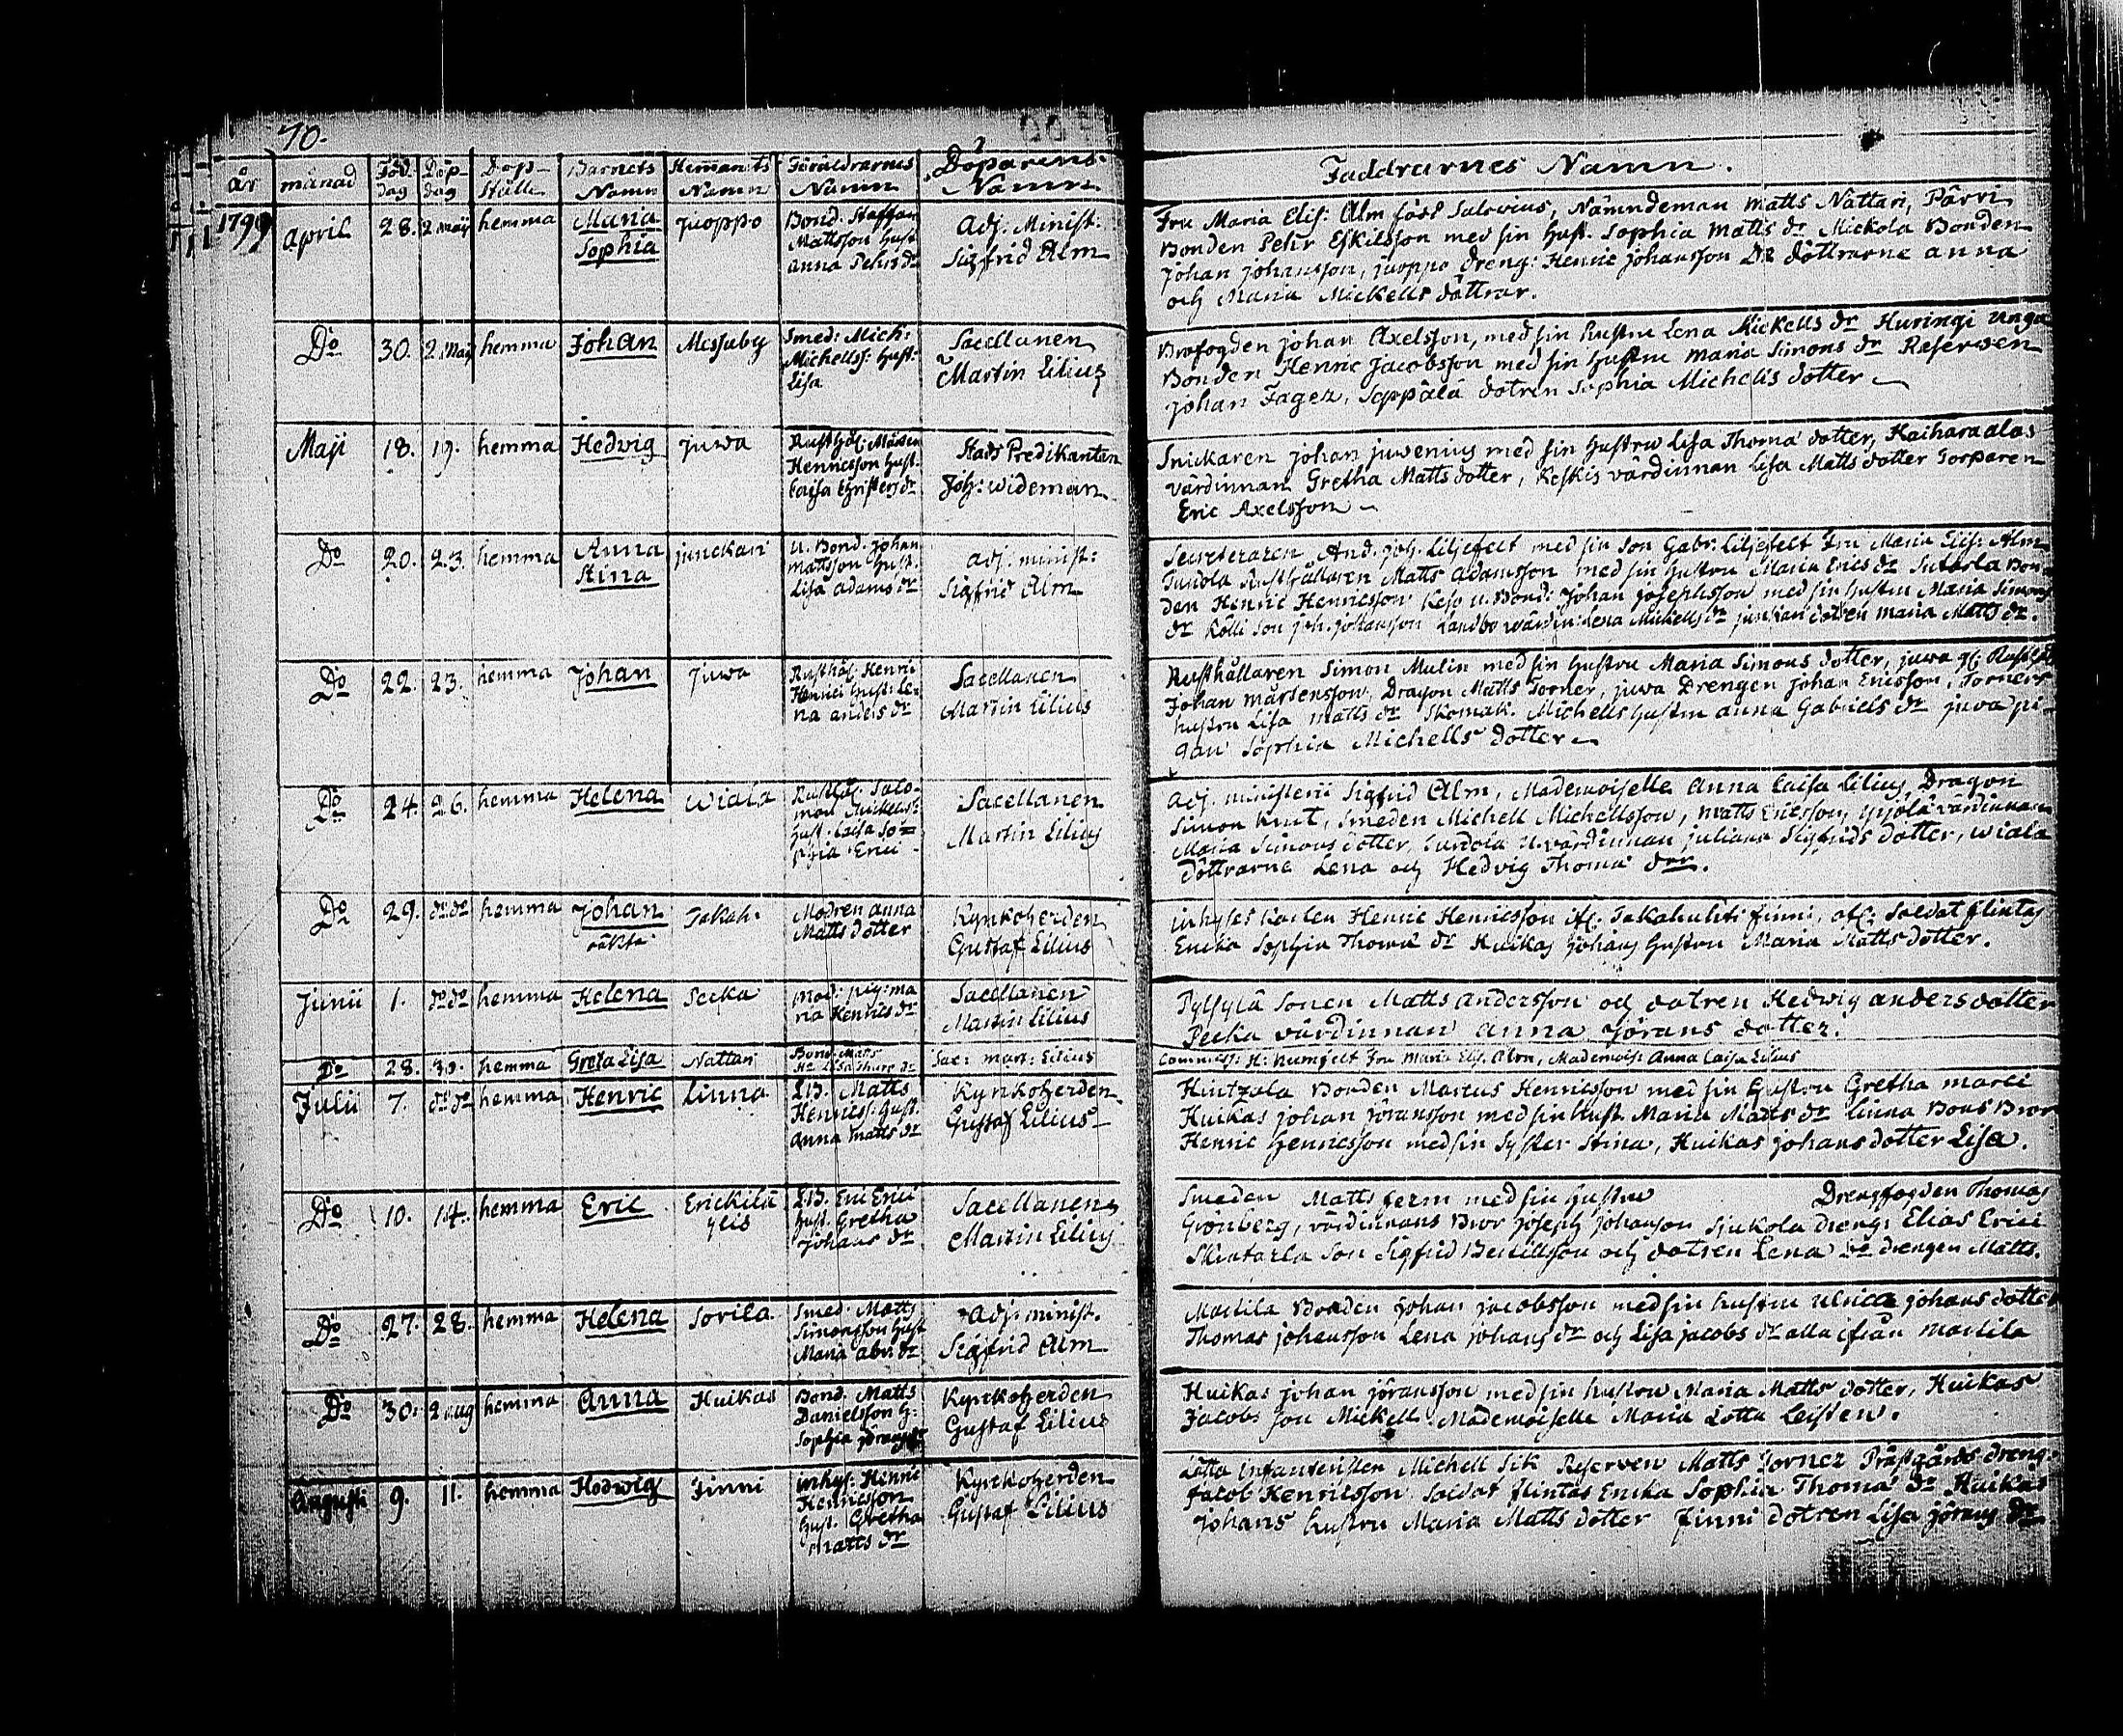 70.
år månad Föd. dag Döp- dag Döp- ställe Barnets Namn Hemanets Namn Föräldrarnes Namn Döparens Namn
Faddrarnes Namn.
1799 April 28. 2 Maij hemma Maria Sophia Juoppo Bond. Staffan Mattsson Hust. Anna Pehrs dr Adj. Minist: Sigfrid Alm
Fru Maria Elis: Alm född Salovius, Nämndeman Matts Nattari, Pärri
Bonden Pehr Eskilsson med sin Hust. Sophia Matts dr Mickola Bonden
Johan Johansson, Juoppo dreng: Henric Johansson Do döttrarne Anna
och Maria Mickells döttrar.
Do 30. 2. Maij hemma Johan Messuby Smed: Mich: Michellss: Hust: Lisa Sacellanen Martin Lilius
Brofogden Johan Axelsson, med sin Hustru Lena Mickells dr Huringi unga
Bonden Henric Jacobsson med sin Hustru Maria Simons dr Reserven
Johan Fager, Sappälä dotren Sophia Michells dotter
Maji 18. 19. hemma Hedvig Juva Rusthål: Mårten Henricsson Hust. Caisa Christers dr Stads Predikanten Joh: Wideman
Snickaren Johan Juvenius med sin Hustru Lisa Thoma dotter, Kaiharaalas
värdinnan Gretha Matts dotter, Keskis värdinnan Lisa Matts dotter Torparen
Eric Axelsson
Do 20. 23. hemma Anna Stina Junckari U. Bond. Johan Mattsson Hust. Lisa Adams dr Adj. minist: Sigfrid Alm
Secreteraren And. Joh. Liljefelt med sin Son Gabr. Liljefelt Fru Maria Elis: Alm
Rusthållaren Matts Adamsson med sin Hustru Maria Erics dr Bon-
den Henric Henricsson Keso U. Bond: Johan Josephsson med sin Hustru Maria Simons
dr Kölli Son Joh. Johansson Landbo wärdin: Lena Mickells dr Junkari dotren Maria Matts dr.
Do 22. 23. hemma Johan Juwa Rusthål: Henric Henrici Hust: Lena Anders dr Sacellanen Martin Lilius
Rusthållaren Simon Malin med sin Hustru Maria Simons dotter, Juwa gl. Rusth
Johan Mårtensson, Dragon Matts Torner, Juwa Drengen Johan Ericsson, Torners
hustru Lisa Matts dr Skomak. Michells Hustru Anna Gabriels dr Juva pi-
gan Sophia Michells dotter
Do 24. 26. hemma Helena Wiala Rusthål. Salomon Mickelss: Hust. Caisa Sophia Erici Sacellanen Martin Lilius
Adj. ministerii Sigfrid Alm, Mademoiselle Anna Caisa Lilius, Dragon
Simon Knut, Smeden Michell Michellsson, Matts Ericsson, värdinnan
Maria Simons dotter, U. värdinnan Juliana Sigfrids dotter, Wiala
döttrarne Lena och Hedvig Thoma drr.
Do 29. do do hemma Johan oäkta Takah. Modren Anna Matts dotter Kyrkoherden Gustaf Lilius
Inhyses Karlen Henric Henricsson if: Takahuhti Finni, Soldat Flintas
Ericka Sophia Thoma dr Huikas Johans Hustru Maria Matts dotter.
Junii 1. do do hemma Helena Pecka Mod: pig: Maria Henrics dr Sacellanen Martin Lilius
Pylsylä Sonen Matts Andersson och dotren Hedwig Anders dotter
Pecka värdinnan Anna Jörans dotter.
Do 28. 30. hemma Greta Lisa Nattari Bond: Matts Sac: Mart: Lilius
Commiss: H: Numfelt Fru Maria Elis. Alm, Mademois: Anna Caisa Lilius
Julii 7. do do hemma Henric Linna LB. Matts Henricss: Hust. Anna Matts dr Kyrkoherden Gustaf Lilius
Hintzala Bonden Marcus Henricsson med sin Hustru Gretha Marci
Huikas Johan Jöransson med sin Hust. Maria Matts dr Linna Bond Bror
Henric Henricsson med sin Syster Stina, Huikas Johans dotter Lisa.
Do 10. 14. hemma Eric Erickilä LB. Eric Erici Hust. Gretha Johans dr Sacellanen Martin Lilius
Smeden Matts Ferm med sin Hustru Drengfogden Thomas
Grönberg, värdinnans Bror Joseph Johansson Sjukola Dreng: Elias Erici
Son Sigfrid Bertillsson och dotren Lena Do drengen Matts.
Do 27. 28. hemma Helena Sorila Smed. Matts Simonsson Hust. Maria Abr: dr Adj: minist. Sigfrid Alm
Martila Bonden Johan Jacobsson med sin hustru Ulrica Johans dotter
Thomas Johansson Lena Johans dr och Lisa Jacobs dr alla ifrån Martila
Do 30. 2 aug hemma Anna Huikas Bond. Matts Danielsson H: Sophia Jörans dr Kyrkoherden Gustaf Lilius
Huikas Johan Jöransson med sin hustru Maria Matts dotter, Huikas
Jacobs Son Mickell Mademoiselle Maria Lotta Leisten.
Augusti 9. 11. hemma Hedwig Finni inhys: Henric Henricsson Hust. Gretha Matts dr Kyrkoherden Gustaf Lilius
Lätta Infanteristen Michell Sik Reserven Matts Torner Prästgårds dreng:
Jacob Henricsson Soldat Flintas Ericka Sophia Thoma dr Huikas
Johans hustru Maria Matts dotter Finni dotren Lisa Jörans dr